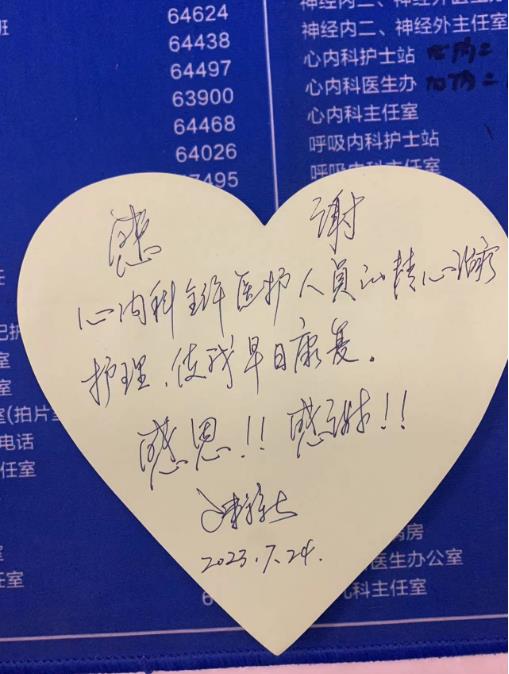 64624
64438
64497
63900
64468
64026
7495
神经内二、神经外主任室
心内科护士站
心内科医生办
心内科主任室
呼吸内科护士站
呼吸内科主任室
感 谢
心内科全体医护人員的精心治疗
护理、使我早日康复。
感恩!! 感谢!!
2023.7.24.
任
室
室
室(拍片
电话
任室
室
任室
室
病房
医生办公室
科主任室
6